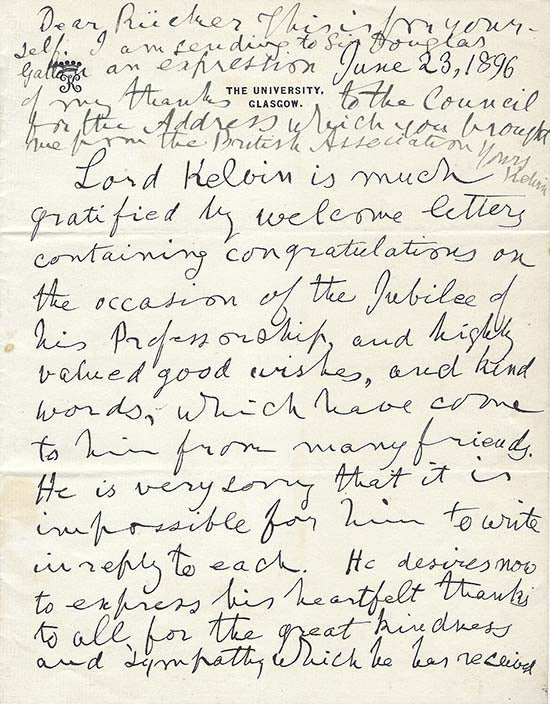 Dear Rücker This is for your-
self. I am sending to Sir Douglas
Galton an expression June 23, 1896
THE UNIVERSITY,
GLASGOW.
of my thanks to the Council
for the Address which you brought
me from the British Association Yours
Kelvin
Lord Kelvin is much
gratified by welcome letters
containing congratulations on
the occasion of the Jubilee of
his Professorship, and highly
valued good wishes, and kind
words, which have come
to him from many friends.
He is very sorry that it is
impossible for him to write
in reply to each. He desires now
to express his heartfelt thanks
to all for the great kindness
and sympathy which he has received